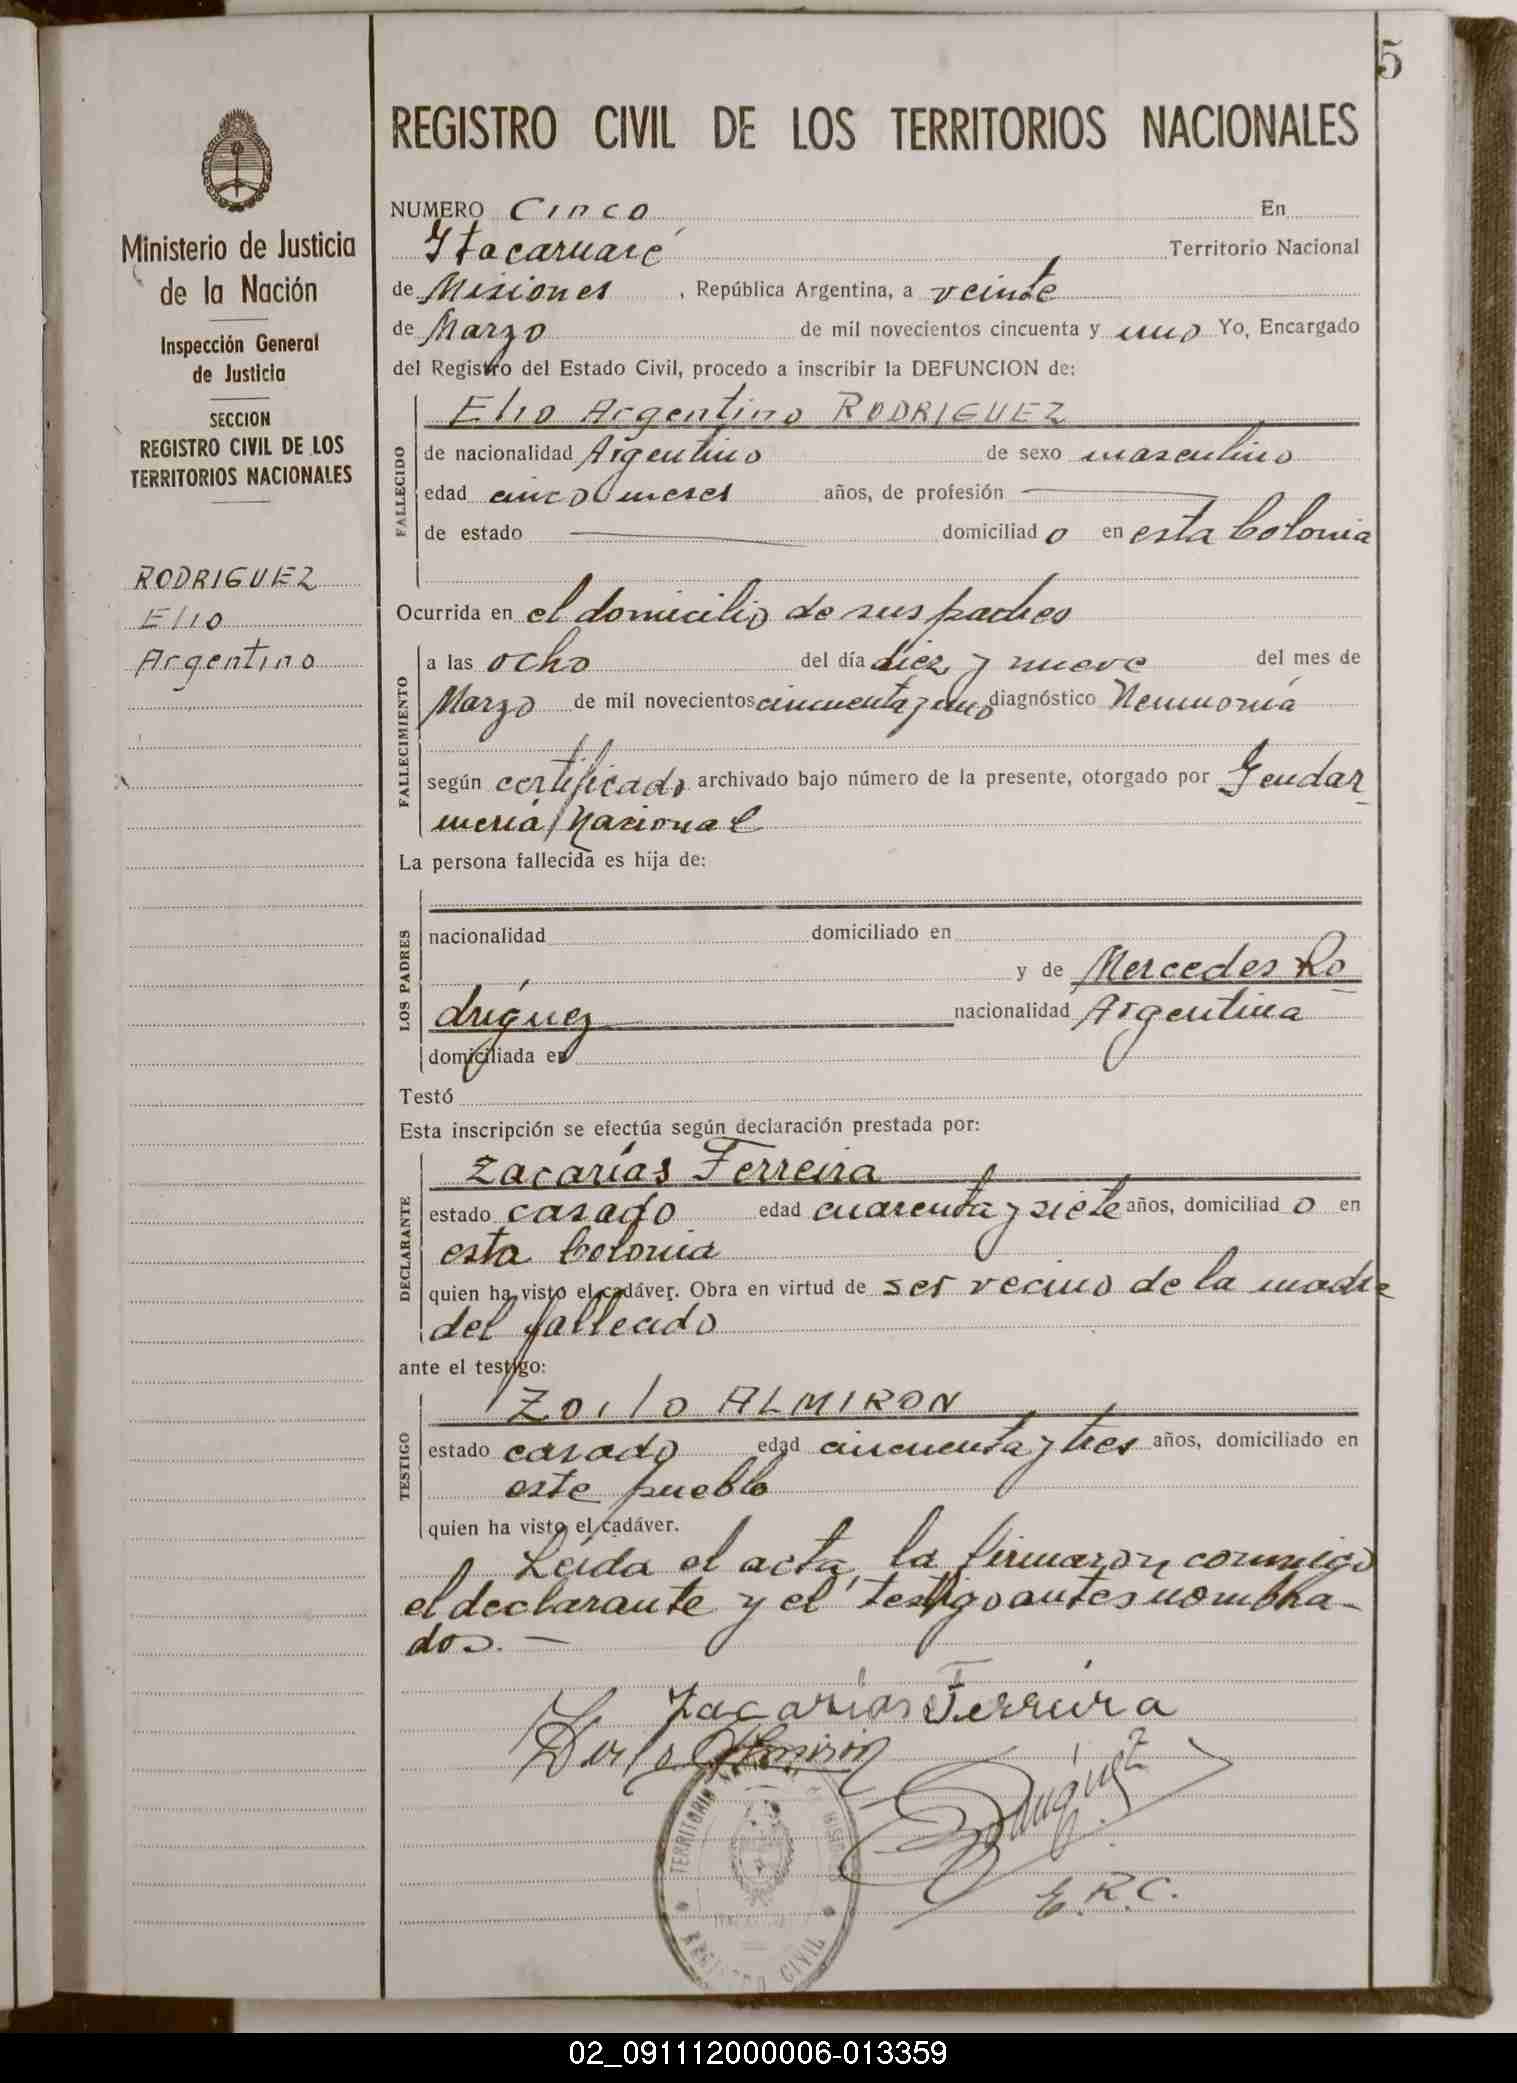 5
REGISTRO CIVIL DE LOS TERRITORIOS NACIONALES
Ministerio de Justicia
de la Nación
Inspección General
de Justicia
SECCION
REGISTRO CIVIL DE LOS
TERRITORIOS NACIONALES
RODRIGUEZ
Elio
Argentino
NUMERO Cinco En
Itacaruaré Territorio Nacional
de Misiones, República Argentina, a veinte
de Marzo de mil novecientos cincuenta y uno Yo, Encargado
del Registro del Estado Civil, procedo a inscribir la DEFUNCION de:
FALLECIDO
Elio Argentino RODRIGUEZ
de nacionalidad Argentino de sexo masculino
edad cinco meses años, de profesión
de estado domiciliado en esta Colonia
Ocurrida en el domicilio de sus padres
FALLECIMIENTO
a las ocho del día diez y nueve del mes de
Marzo de mil novecientos cincuenta y uno diagnóstico Neumonía
según certificado archivado bajo número de la presente, otorgado por Gendar-
mería Nacional
La persona fallecida es hija de:
LOS PADRES
nacionalidad domiciliado en
y de Mercedes Ro
dríguez nacionalidad Argentina
domiciliada en
Testó
Esta inscripción se efectúa según declaración prestada por:
DECLARANTE
Zacarías Ferreira
estado casado edad cuarenta y siete años, domiciliado en
esta Colonia
quien ha visto el cadáver. Obra en virtud de ser vecino de la madre
del fallecido
ante el testigo:
TESTIGO
Zoilo ALMIRON
estado casado edad cincuenta y tres años, domiciliado en
este pueblo
quien ha visto el cadáver.
Leída el acta, la firmaron conmigo
el declarante y el testigo antes nombra-
dos.-
Zacarías Ferreira
Zoilo Almirón
E.R.C.
TERRITORIO NACIONAL DE MISIONES
REGISTRO CIVIL
02_091112000006-013359